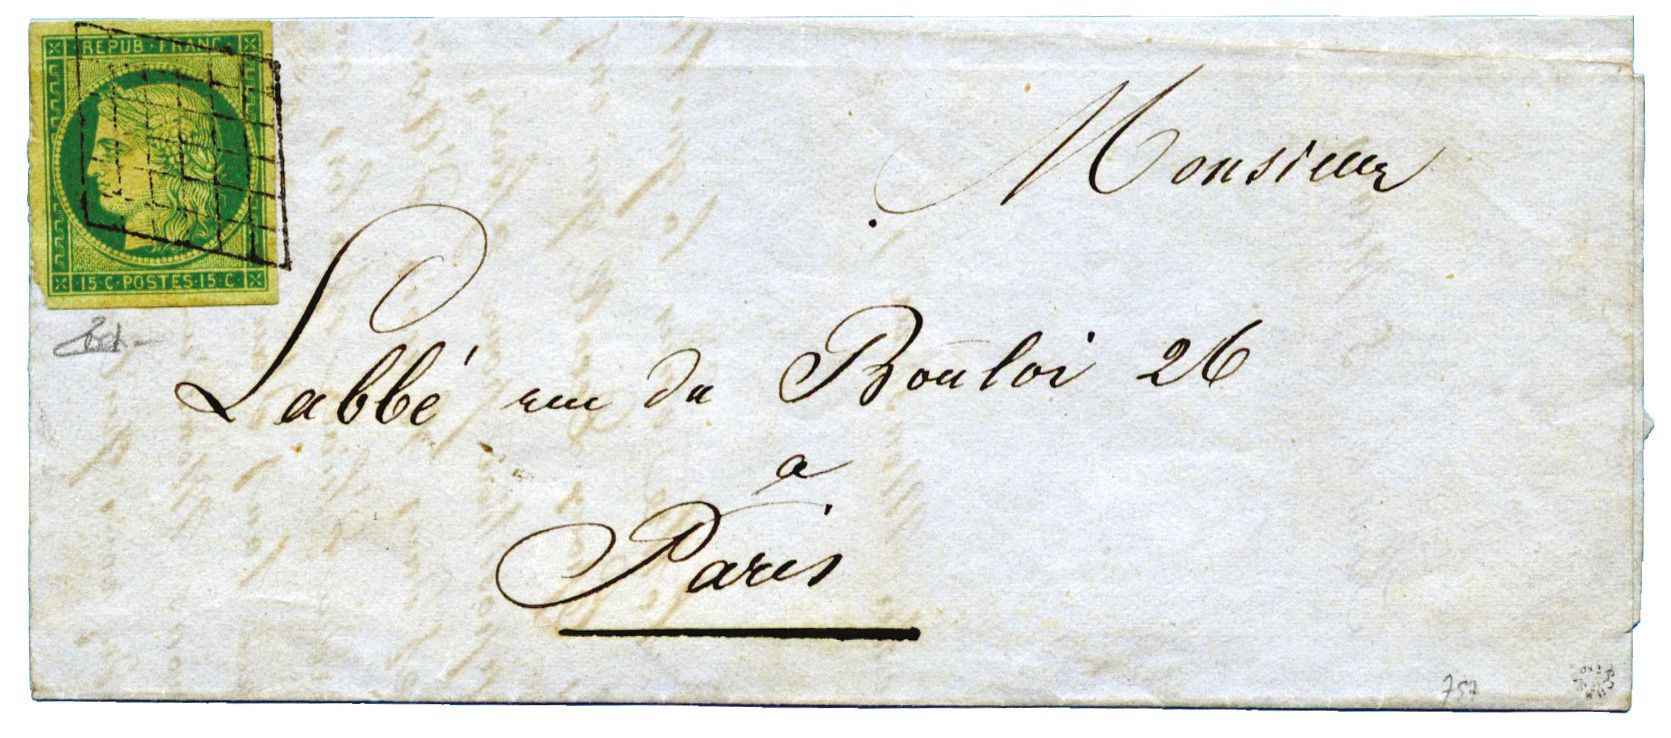 REPUB · FRANC
15 · C · POSTES · 15 · C
Monsieur
Labbé rue du Bouloi 26
a
Paris